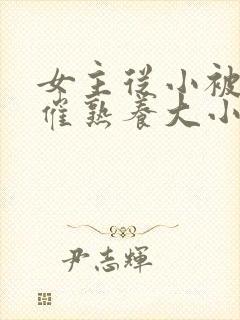 女主从小被
催熟养大小
尹志輝